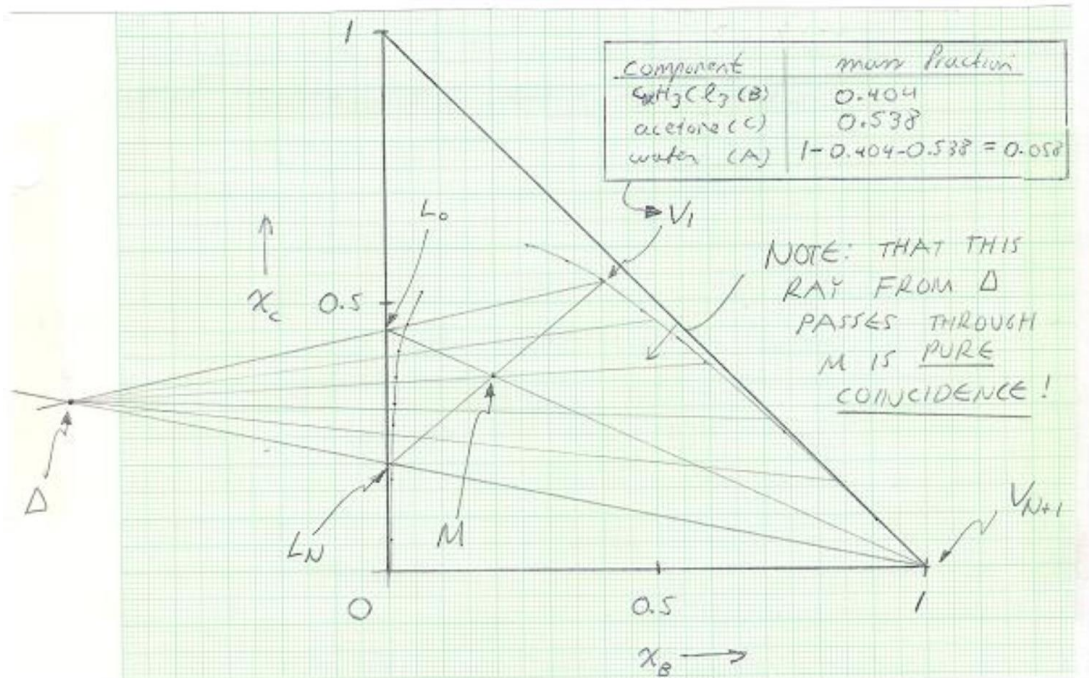 1
component mass fraction
C2H3Cl3 (B) 0.404
acetone (C) 0.538
water (A) 1-0.404-0.538 = 0.058
L₀
V₁
NOTE: THAT THIS
RAY FROM Δ
PASSES THROUGH
M IS PURE
COINCIDENCE!
x_C 0.5
Δ
L_N
M
V_{N+1}
0 0.5 1
x_B